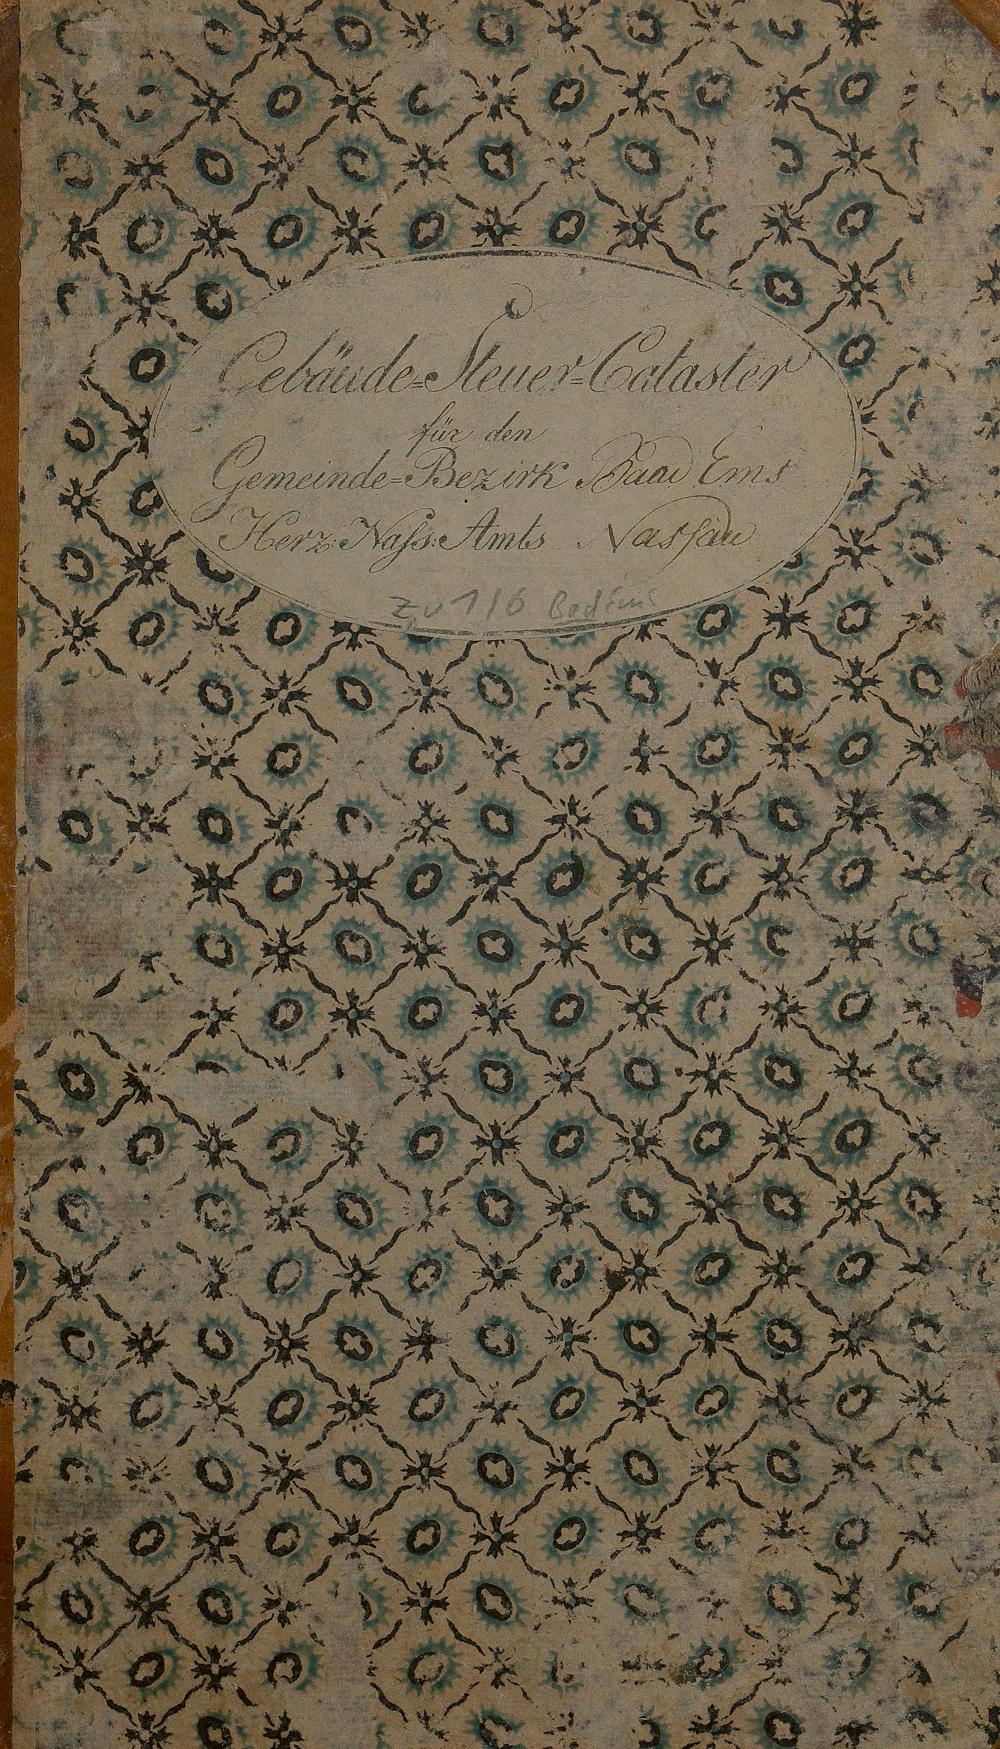 Gebäude=Steuer=Cataster
für den
Gemeinde=Bezirk Baad Ems
Herz: Nass: Amts Nassau
Zu 1/6